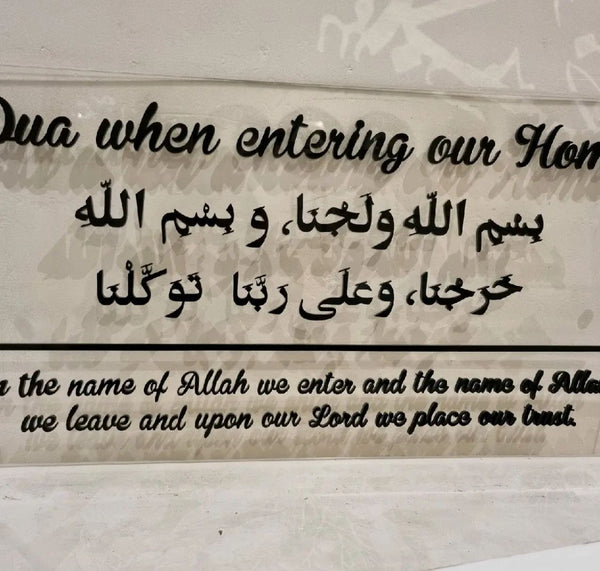 Dua when entering our Hom
بِسْمِ اللّهِ وَلَجْنَا، وَ بِسْمِ اللّهِ
خَرَجْنَا، وَعَلَى رَبَّنَا تَوَكَّلْنَا
n the name of Allah we enter and the name of Alla
we leave and upon our Lord we place our trust.